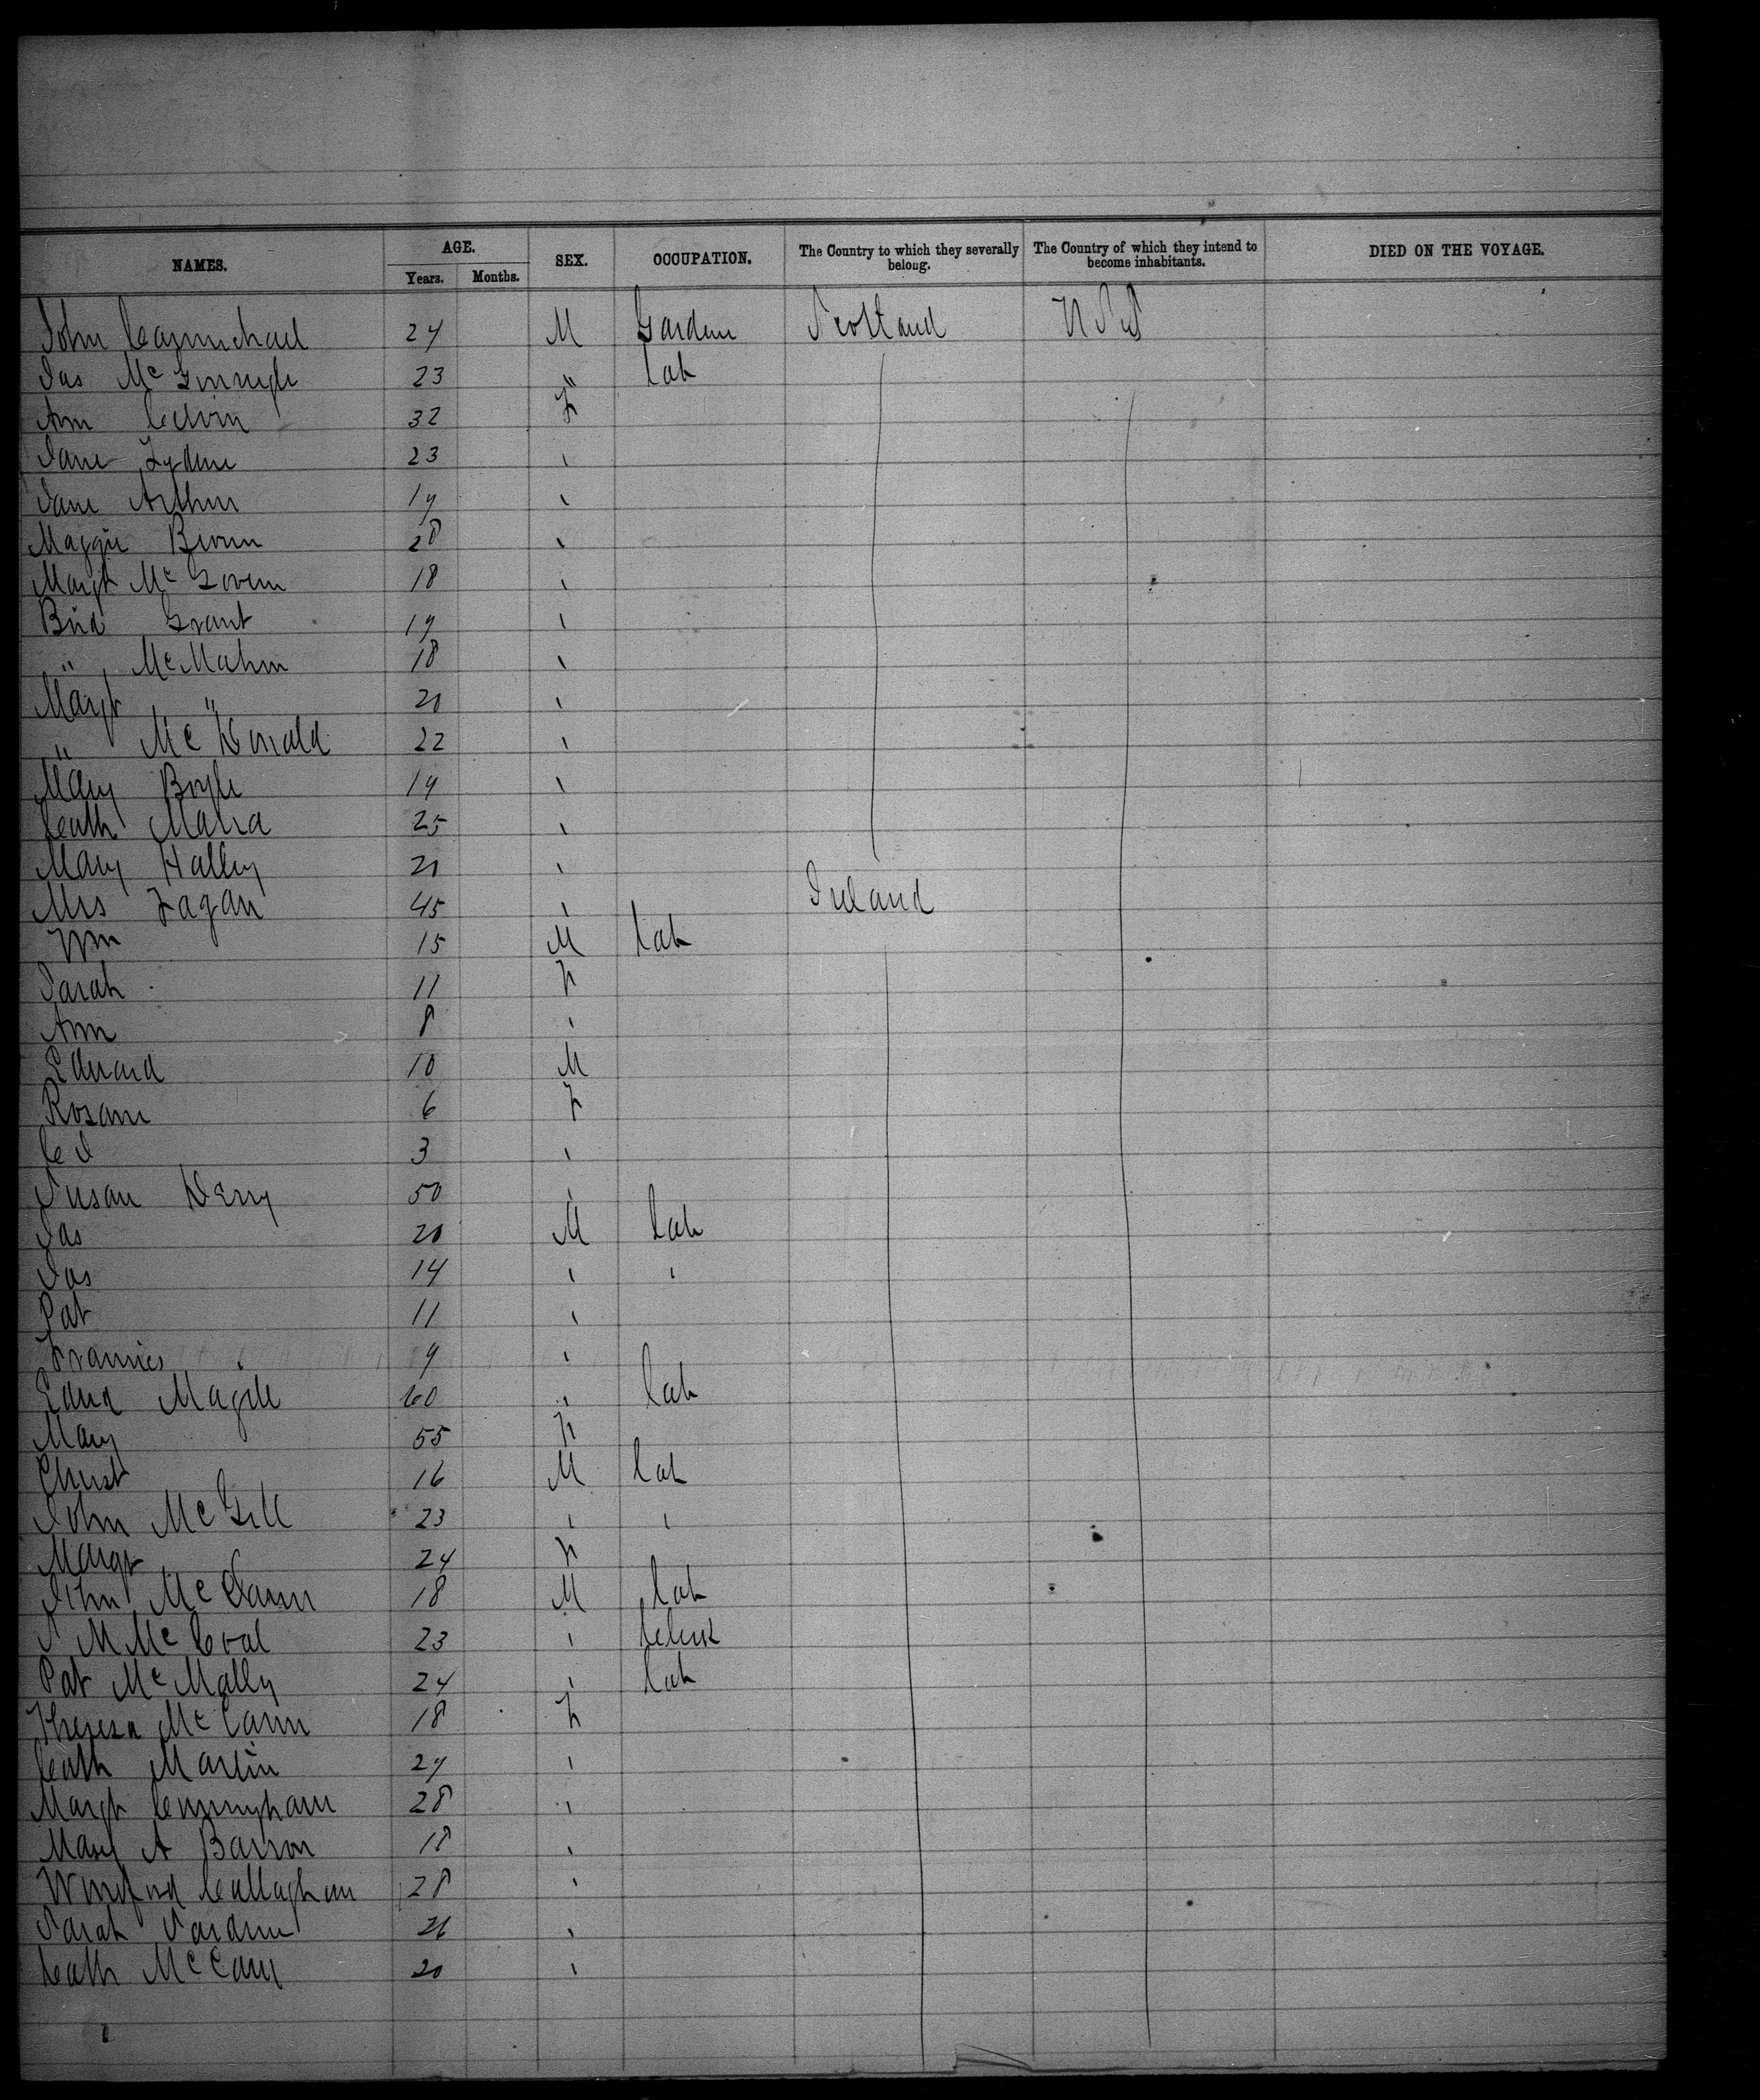 NAMES. AGE. Years. Months. SEX. OCCUPATION. The Country to which they severally beloug. The Country of which they intend to become inhabitants. DIED ON THE VOYAGE.
John Carmichael 24 M Garden Scotland U S
Jas Mc 23 " Lab
Ann Colvin 32 F
Jane 23 "
Jane Arthur 19 "
Maggie Brown 28 "
Margt McGovern 18 "
Brid Grant 19 "
" McMahon 18 "
Margt " 21 "
" McDonald 22 "
Mary Boyle 19 "
Cath Maria 25 "
Mary Halley 21 "
Mrs Fagan 45 " Ireland
Wm 15 M Lab
Sarah 11 F
Ann 8 "
Edward 10 M
Rosann 6 F
3 "
Susan Derry 50 "
Jas 20 M Lab
Jas 14 " "
Pat 11 "
Francies 9 "
Edwd 60 " Lab
Mary 55 F
Christ 16 M Lab
John McGill 23 " "
Margt 24 F
John McCann 18 M Lab
McCoal 23 " Clerk
Pat McNally 24 " Lab
Theresa McCann 18 F
Cath Martin 24 "
Margt Cunningham 28 "
Mary A Barron 18 "
Winifred Callaghan 28 "
Sarah 26 "
Cath 20 "